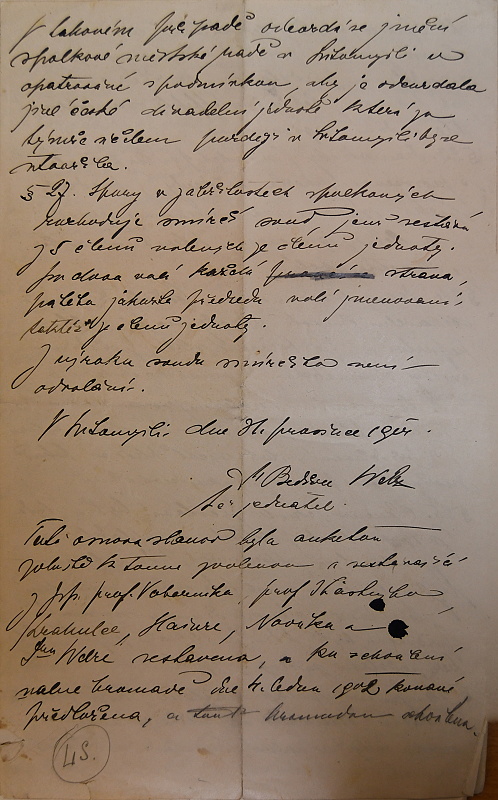 V takovém případě odevzdá se jmění
spolkové městské radě v Litomyšli v
opatrování s podmínkou, aby je odevzdala
jiné české divadelní jednotě která za
týmže účelem později v Litomyšli by se
utvořila.
§ 27. Spory v záležitostech spolkových
rozhoduje smírčí soud jenž sestává
z 5 členů volených ze členů jednoty.
Po dvou volí každá strana,
pátého jakožto předsedu volí jmenovaní
taktéž ze členů jednoty.
Z výroku soudu smírčího není
odvolání.
V Litomyšli dne 31. prosince 1901.
Bedřich Welz
t. č. jednatel.
Tato osnova stanov byla anketou
k tomu zvolenou a sestávající
z pp. prof. Vobornika, prof. Šťastného
Krahulce, Novotka a
Jan Welze sestavena, a ku schválení
valné hromadě dne 4. ledna 1902 konané
předložena, a touto hromadou schválena.
45.